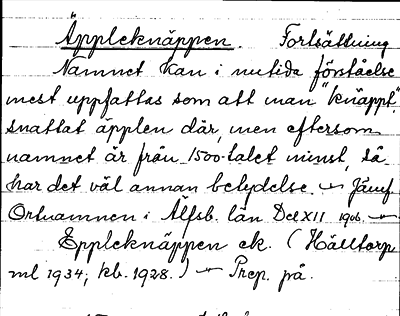 Äppleknäppen. Fortsättning
Namnet kan i nutida förståelse
mest uppfattas som att man "knäppt",
snattat äpplen där, men eftersom
namnet är från 1500-talet minst, så
har det väl annan betydelse. — Jämf
Ortnamnen i Älfsb. län Del XII 1906. —
Eppleknäppen ek. (Hälltorp
ml 1934; kb. 1928.) — Prep. på.